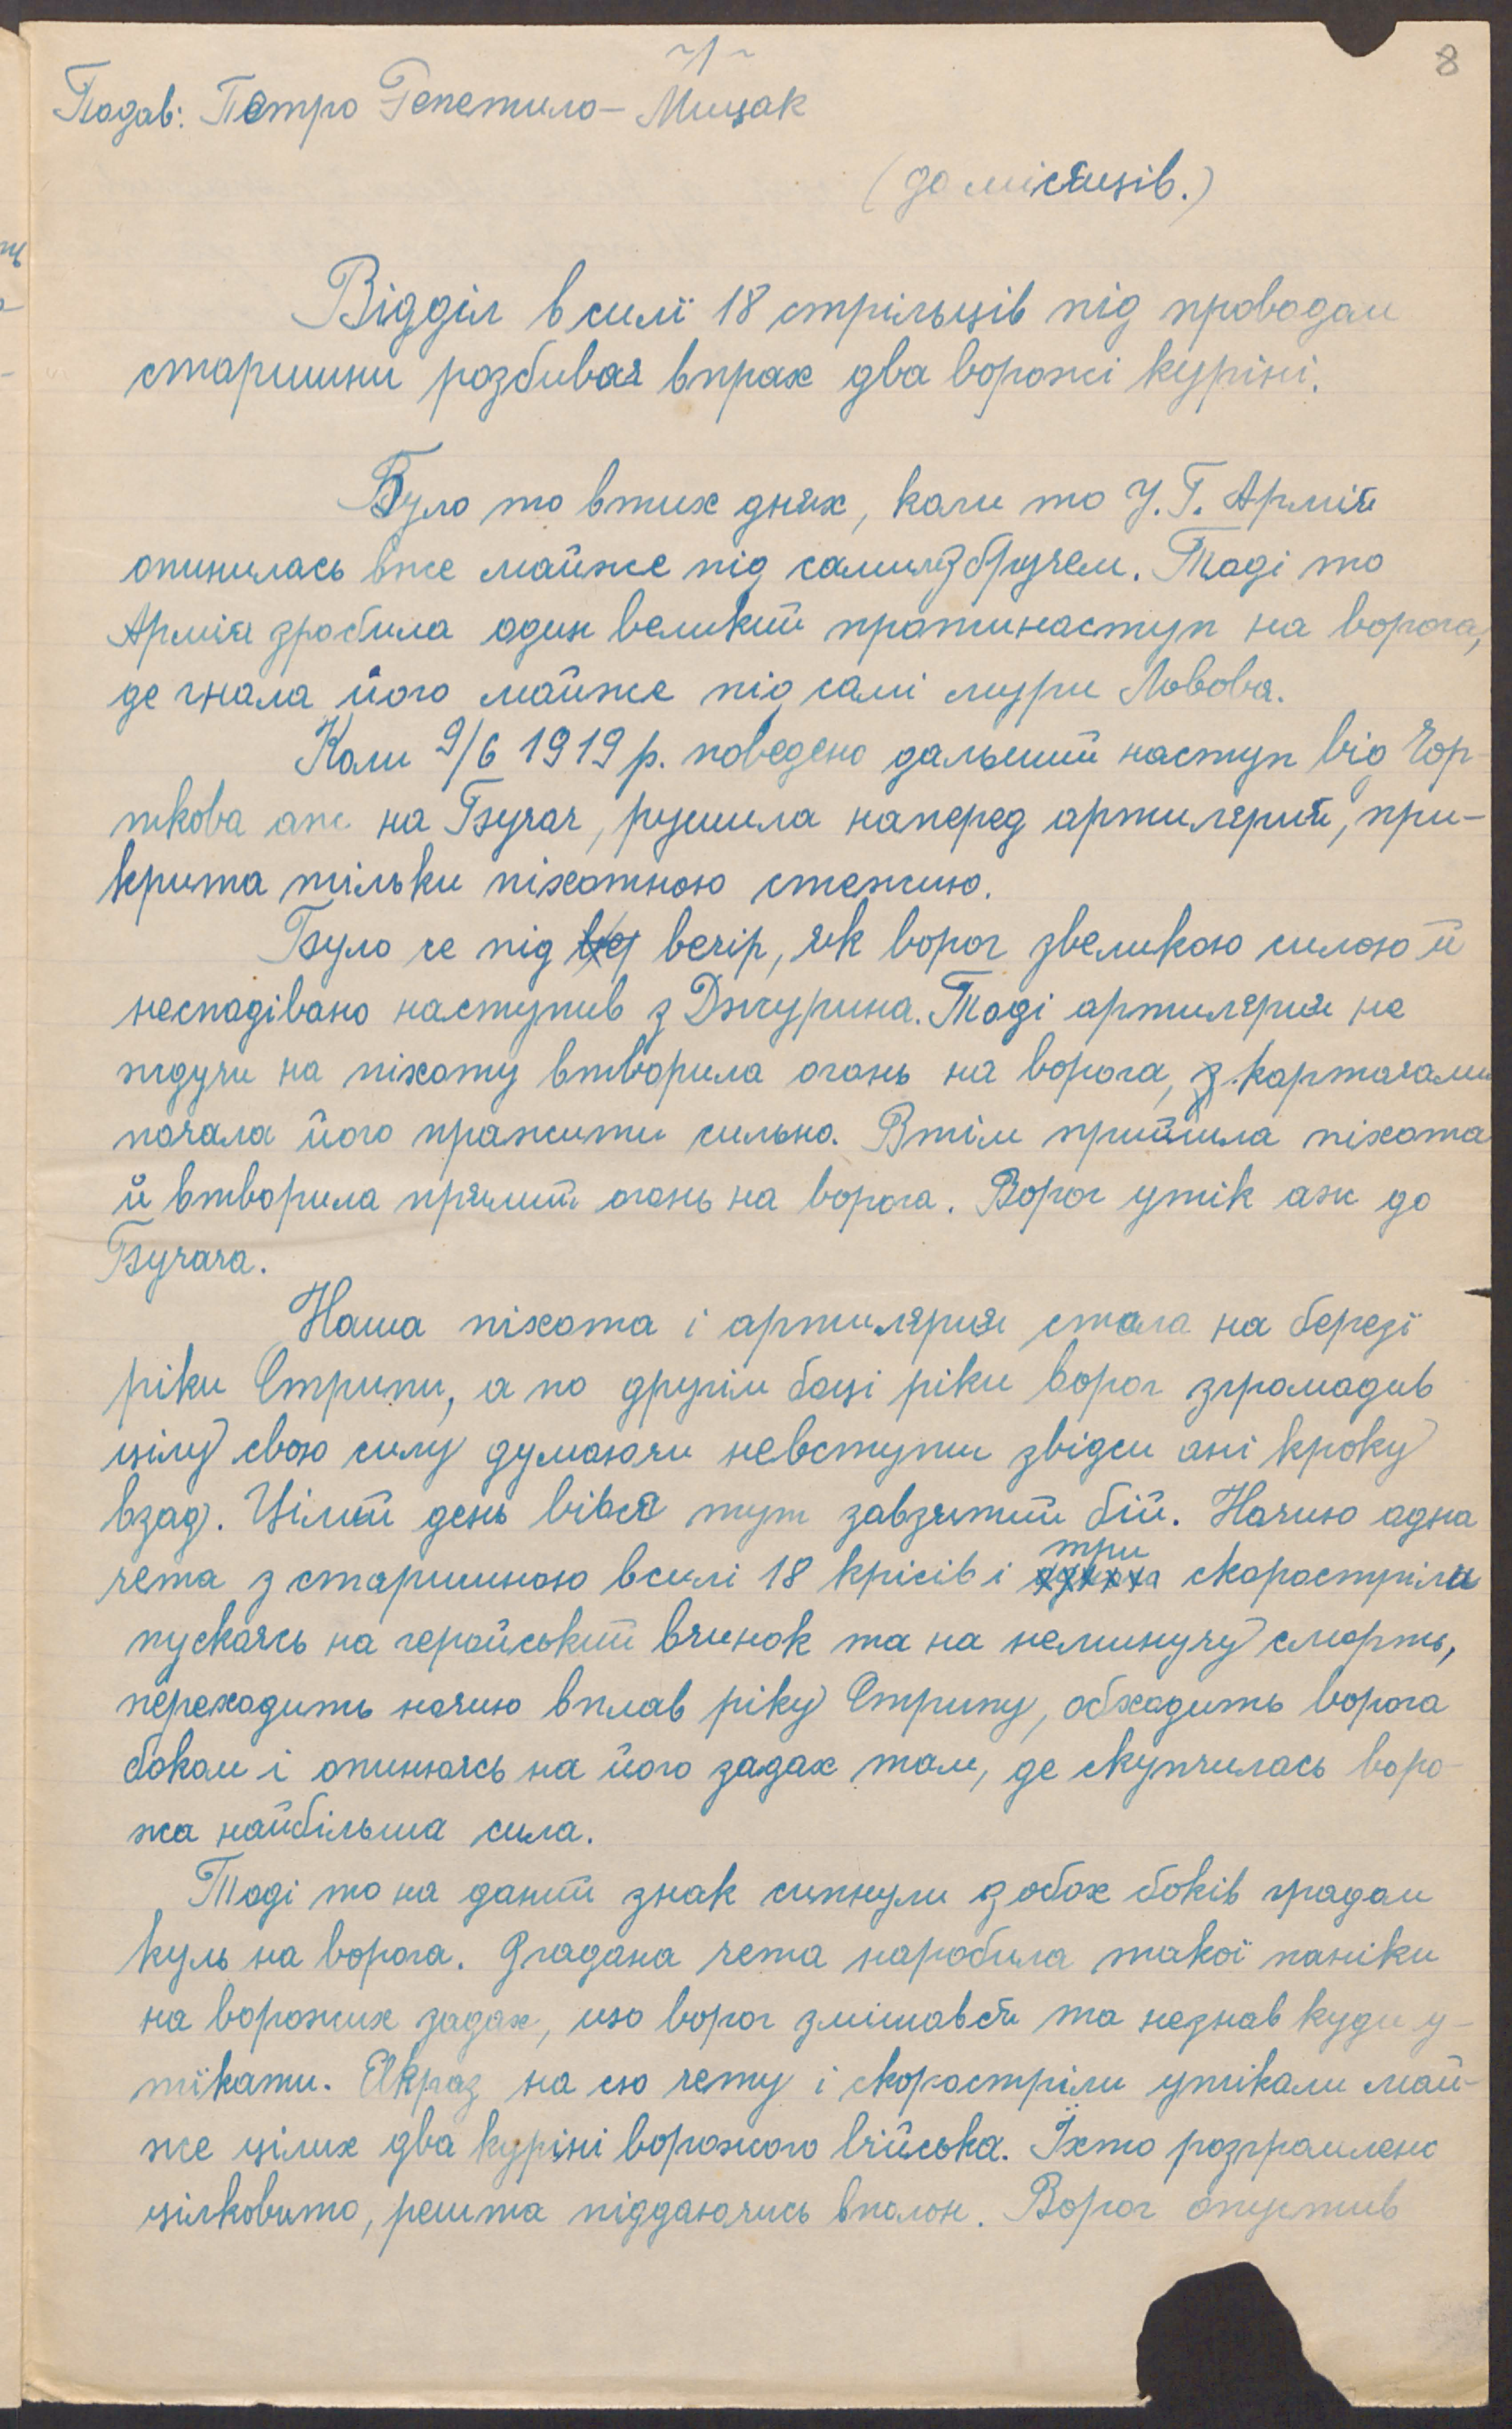 -1-
8
Подав: Петро Гепетило - Мицак
(до місяців.)
Відділ в силї 18 стрільців під проводом
старшини розбиває впрах два ворожі куріні.
Було то втих днях, коли то У. Г. Армія
опинилась вже майже під самим Збручем. Тоді то
Армія зробила один великий протинаступ на ворога,
де гнала його майже під самі мури Львова.
Коли 9/6 1919 р. поведено дальший наступ від Чор-
ткова аж на Бучач, рушила наперед артилєрия, при-
крита тільки піхотною стежею.
Було се під вечір, як ворог звеликою силою й
несподівано наступив з Джурина. Тоді артилєрия не
ждучи на піхоту втворила огонь на ворога, з картачами
почала його пражити сильно. Втім прийшла піхота
й втворила прямий огонь на ворога. Ворог утік аж до
Бучача.
Наша піхота і артилєрия стала на березї
ріки Стрипи, а по другім боці ріки ворог згромадив
цілу свою силу думаючи невступити звідси ані кроку
взад. Цілий день вівся тут завзятий бій. Ночию одна
чета з старшиною всилі 18 крісів і три скоростріли
пускаєсь на геройський вчинок та на неминучу смерть,
переходить ночию вплав ріку Стрипу, обходить ворога
боком і опиняєсь на його задах там, де скупчилась воро-
жа найбільша сила.
Тоді то на даний знак сипнули з обох боків градом
куль на ворога. Згадана чета наробила такої паніки
на ворожих задах, що ворог змішався та незнав куди у-
тїкати. Якраз на сю чету і скоростріли утікали май-
же цілих два куріні ворожого війська. Їхто розгромлено
цілковито, решта піддаючись вполон. Ворог опустив